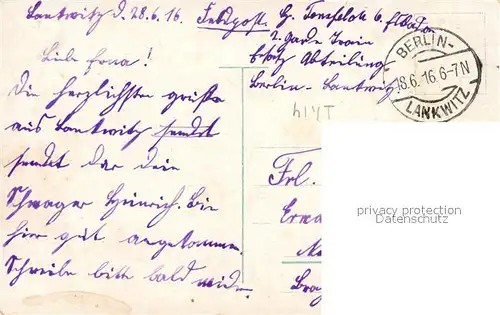 Lankwitz d. 28.6.16. Feldpost.
2. Garde Train
Ersatz Abteilung
Berlin - Lankwitz
BERLIN-
28.6.16 6-7N
LANKWITZ
Liebe Erna!
Die herzlichsten Grüße
aus Lankwitz sendet
sendet dir dein
Schwager Heinrich. Bin
hier gut angekommen.
Schreibe bitte bald wieder.
Frl.
Erna
privacy protection
Datenschutz